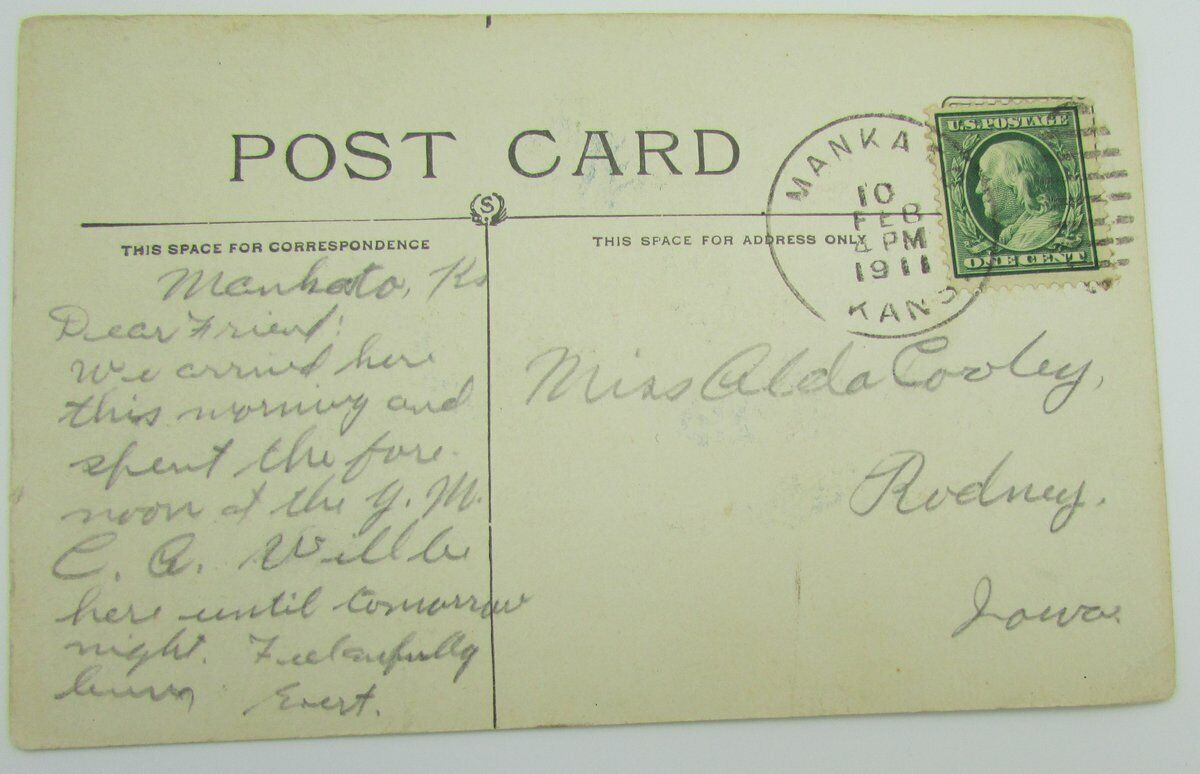 POST CARD
S
THIS SPACE FOR CORRESPONDENCE
THIS SPACE FOR ADDRESS ONLY
MANKA
10
FEB
4 PM
1911
KANS
U.S. POSTAGE
ONE CENT
Mankato, Ks
Dear Friend:
We arrived here
this morning and
spent the fore-
noon at the Y. M.
C. A. Will be
here until tomorrow
night. Feel awfully
Evert.
Miss Alda Cooley,
Rodney,
Iowa.